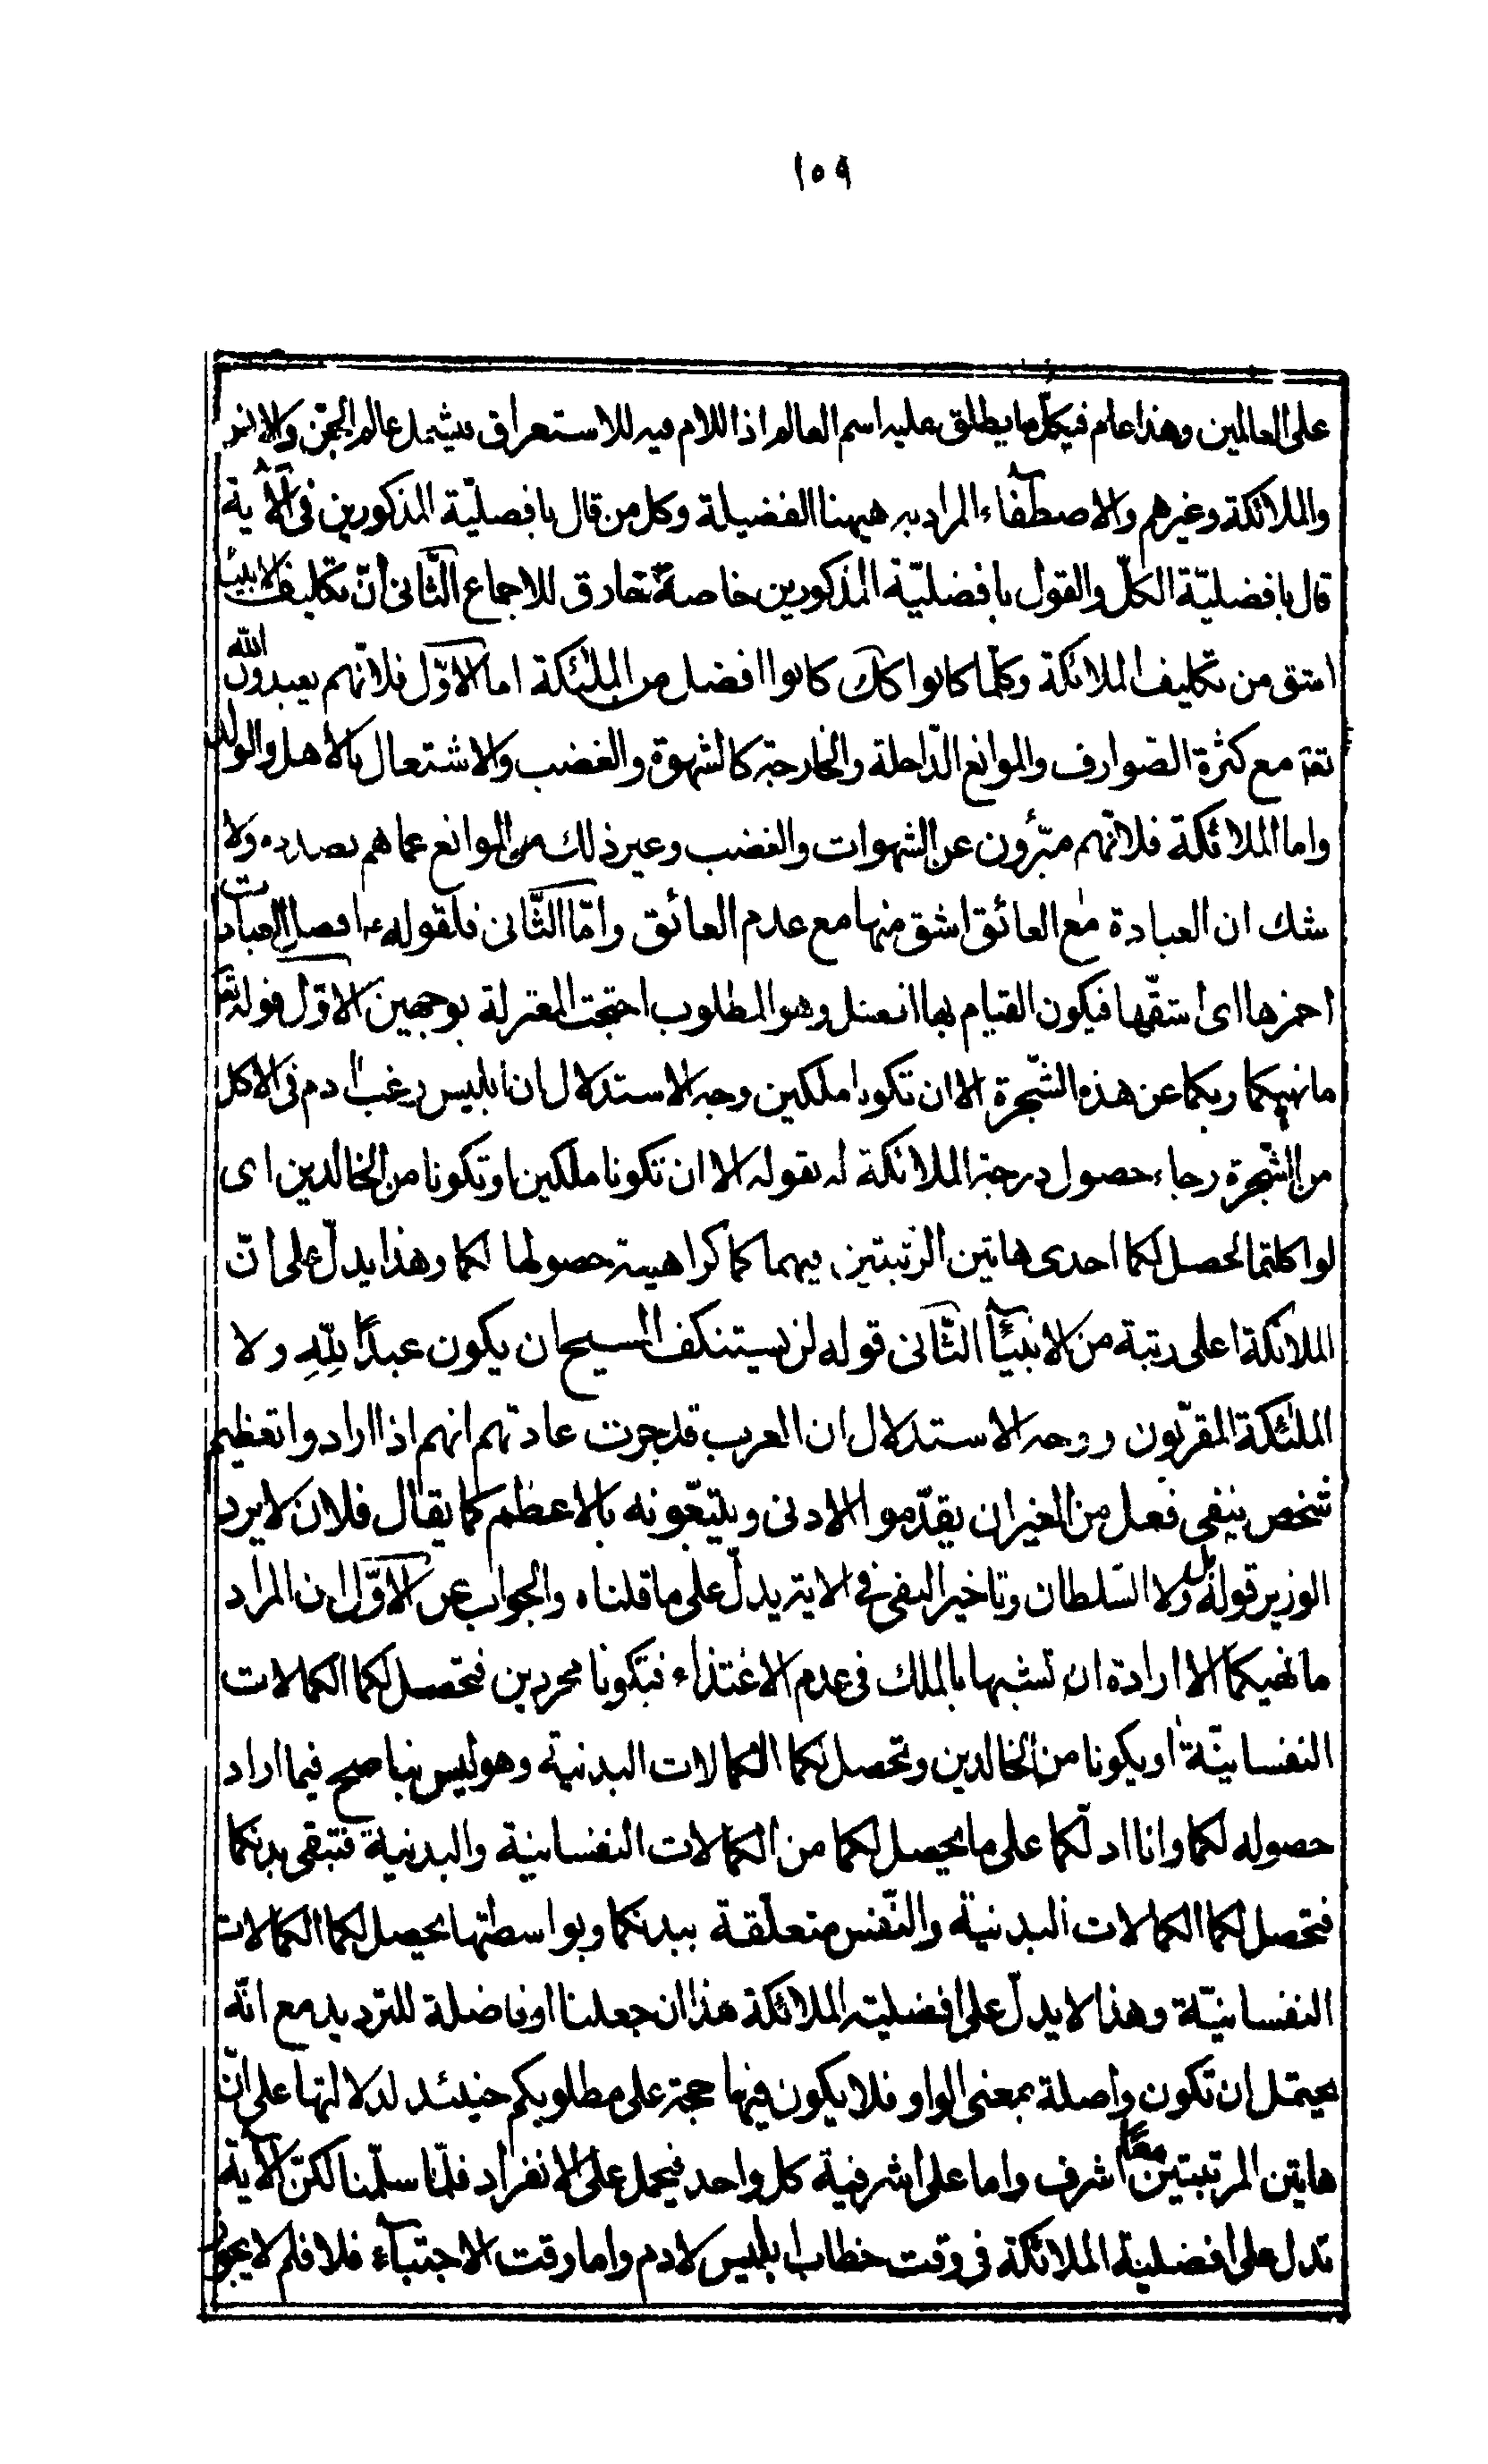 ١٥٩
على العالمين وهذا عام فى كلّ ما يطلق عليه اسم العالم اذ اللام فيه للاستغراق فيشمل عالم الجن والانس
والملائكة وغيرهم والاصطفاء المراد به هيهنا الفضيلة وكل من قال بافضليّة المذكورين فى الآية
قال بافضليّة الكلّ والقول بافضليّة المذكورين خاصة خارق للاجماع الثّانى انّ تكليف الانبياء
اشق من تكليف الملائكة وكلما كانوا كك كانوا افضل من الملئكة اما الاوّل فلانّهم يعبدون الله
تقة مع كثرة الصّوارف والموانع الدّاخلة والخارجة كالشهوة والغضب والاشتغال بالأهل والولد
واما الملائكة فلانّهم مبّرؤن عن الشهوات والغضب وغير ذلك من الموانع عما هم بصدده ولا
شك ان العبادة مع العائق اشق منها مع عدم العائق وامّا الثّانى فلقوله ع افضل العبادات
احمزها اى اشقّها فيكون القيام بها افضل وهو المطلوب احتجّت المعتزلة بوجهين الاوّل قوله تعا
ما نهيكما ربكما عن هذه الشّجرة الا ان تكونا ملكين وجه الاستدلال ان ابليس رغب ادم فى الاكل
من الشّجرة رجاء حصول درجة الملائكة له بقوله الا ان تكونا ملكين او تكونا من الخالدين اى
لو اكلتما لحصل لكما احدى هاتين الرتبتين فنهيكما كراهية حصولها لكما وهذا يدلّ على انّ
الملائكة اعلى رتبة من الانبياء الثّانى قوله لن يستنكف المسيح ان يكون عبدًا لِلّهِ ولا
الملئكة المقرّبون ووجه الاستدلال ان العرب قد جرت عادتهم انهم اذا ارادوا تعظيم
شخص بنفى فعل من الغير ان يقدّموا الادنى ويتبعّونه بالاعظم كما يقال فلان لا يرد
الوزير قوله ولا السّلطان وتاخير النفى فى الاية يدلّ على ما قلناه والجواب عن الاوّل ان المراد
ما نهيكما الا ارادة ان تشبها بالملك فى عدم الاغتذاء فتكونا مجردين فتحصل لكما الكمالات
النفسانيّة او يكونا من الخالدين وتحصل لكما الكمالات البدنية وهو ليس بناصح فيما اراد
حصوله لكما وانا ادلّكما على ما يحصل لكما من الكمالات النفسانية والبدنية فتبقى بدنكما
فتحصل لكما الكمالات البدنية والنّفس متعلّقة ببدنكما وبواسطتها يحصل لكما الكمالات
النفسانيّة وهذا لا يدلّ على افضلية الملائكة هذا ان جعلنا او فاضلة للترديد مع انّه
يحتمل ان تكون واصلة بمعنى الواو فلا يكون فيها حجة على مطلوبكم حينئذ لدلالتها على انّ
هاتين المرتبتين معًا اشرف واما على اشرفية كل واحد فيحمل على الانفراد فلا سلّمنا لكن الآية
تدل على افضلية الملائكة فى وقت خطاب ابليس لادم واما وقت الاجتباء فلا فلم لا يجوز